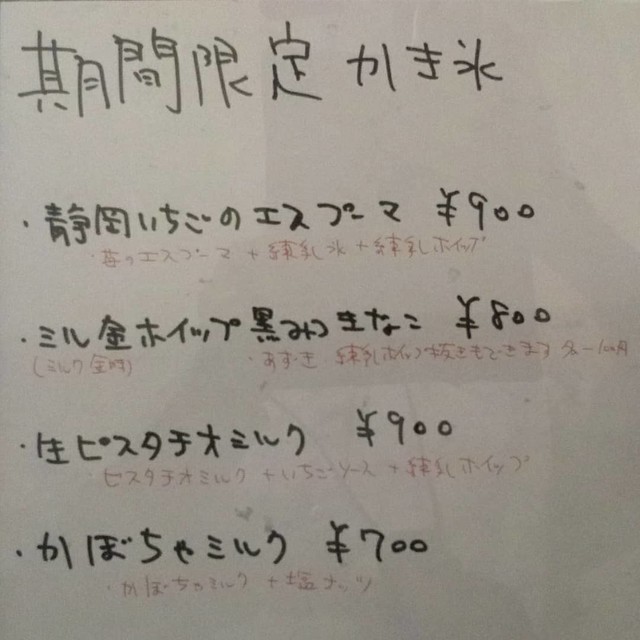 期間限定 かき氷
・静岡いちごのエスプーマ ¥900
・苺のエスプーマ + 練乳氷 + 練乳ホイップ
・ミル金ホイップ黒みつきなこ ¥800
(ミルク金時) ・あずき 練乳ホイップ抜きもできます
・生ピスタチオミルク ¥900
ピスタチオミルク + いちごソース + 練乳ホイップ
・かぼちゃミルク ¥700
・かぼちゃミルク + 塩ナッツ